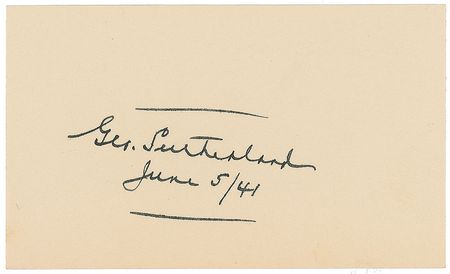 Geo. Sutherland
June 5/41